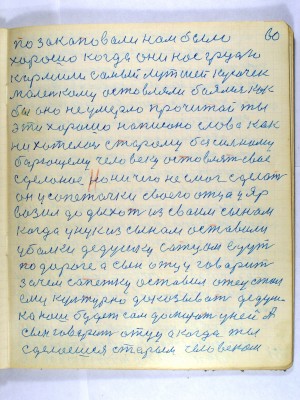 60
позакаповали нам было
хорошо когда они нас грудю
кармили самый лутшей кусочек
маленкому оставляли баялис как
бы оно не умерло прочитай ты
эти хорошо написано слова как
ни хотелос старому безсилному
бающему человеку оставлят свае
сделаное Но ничего не смог сделат
он у сапеточки своего отца у Яр
вазил додвохот из сваим сынам
когда унук из сынам оставили
у балки дедушку сатцом едут
по дароге а сын отцу говарит
зачем сапетку оставил отец стал
ему культурно доказывать дедуш-
ка наш будет сам домират у ней А
сын говорит отцу а когда ты
сделаешся старым человеком